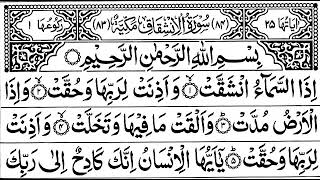 اٰیَاتُهَا ۲۵ (۸۴) سُوْرَةُ الْاِنْشِقَاقِ مَكِّیَّةٌ (۸۳) رُكُوْعُهَا ۱
بِسْمِ اللّٰهِ الرَّحْمٰنِ الرَّحِیْمِ
اِذَا السَّمَآءُ انْشَقَّتْ ۙ۱ وَاَذِنَتْ لِرَبِّهَا وَحُقَّتْ ۙ۲ وَاِذَا
الْاَرْضُ مُدَّتْ ۙ۳ وَاَلْقَتْ مَا فِیْهَا وَتَخَلَّتْ ۙ۴ وَاَذِنَتْ
لِرَبِّهَا وَحُقَّتْ ؕ۵ یٰۤاَیُّهَا الْاِنْسَانُ اِنَّكَ كَادِحٌ اِلٰی رَبِّكَ